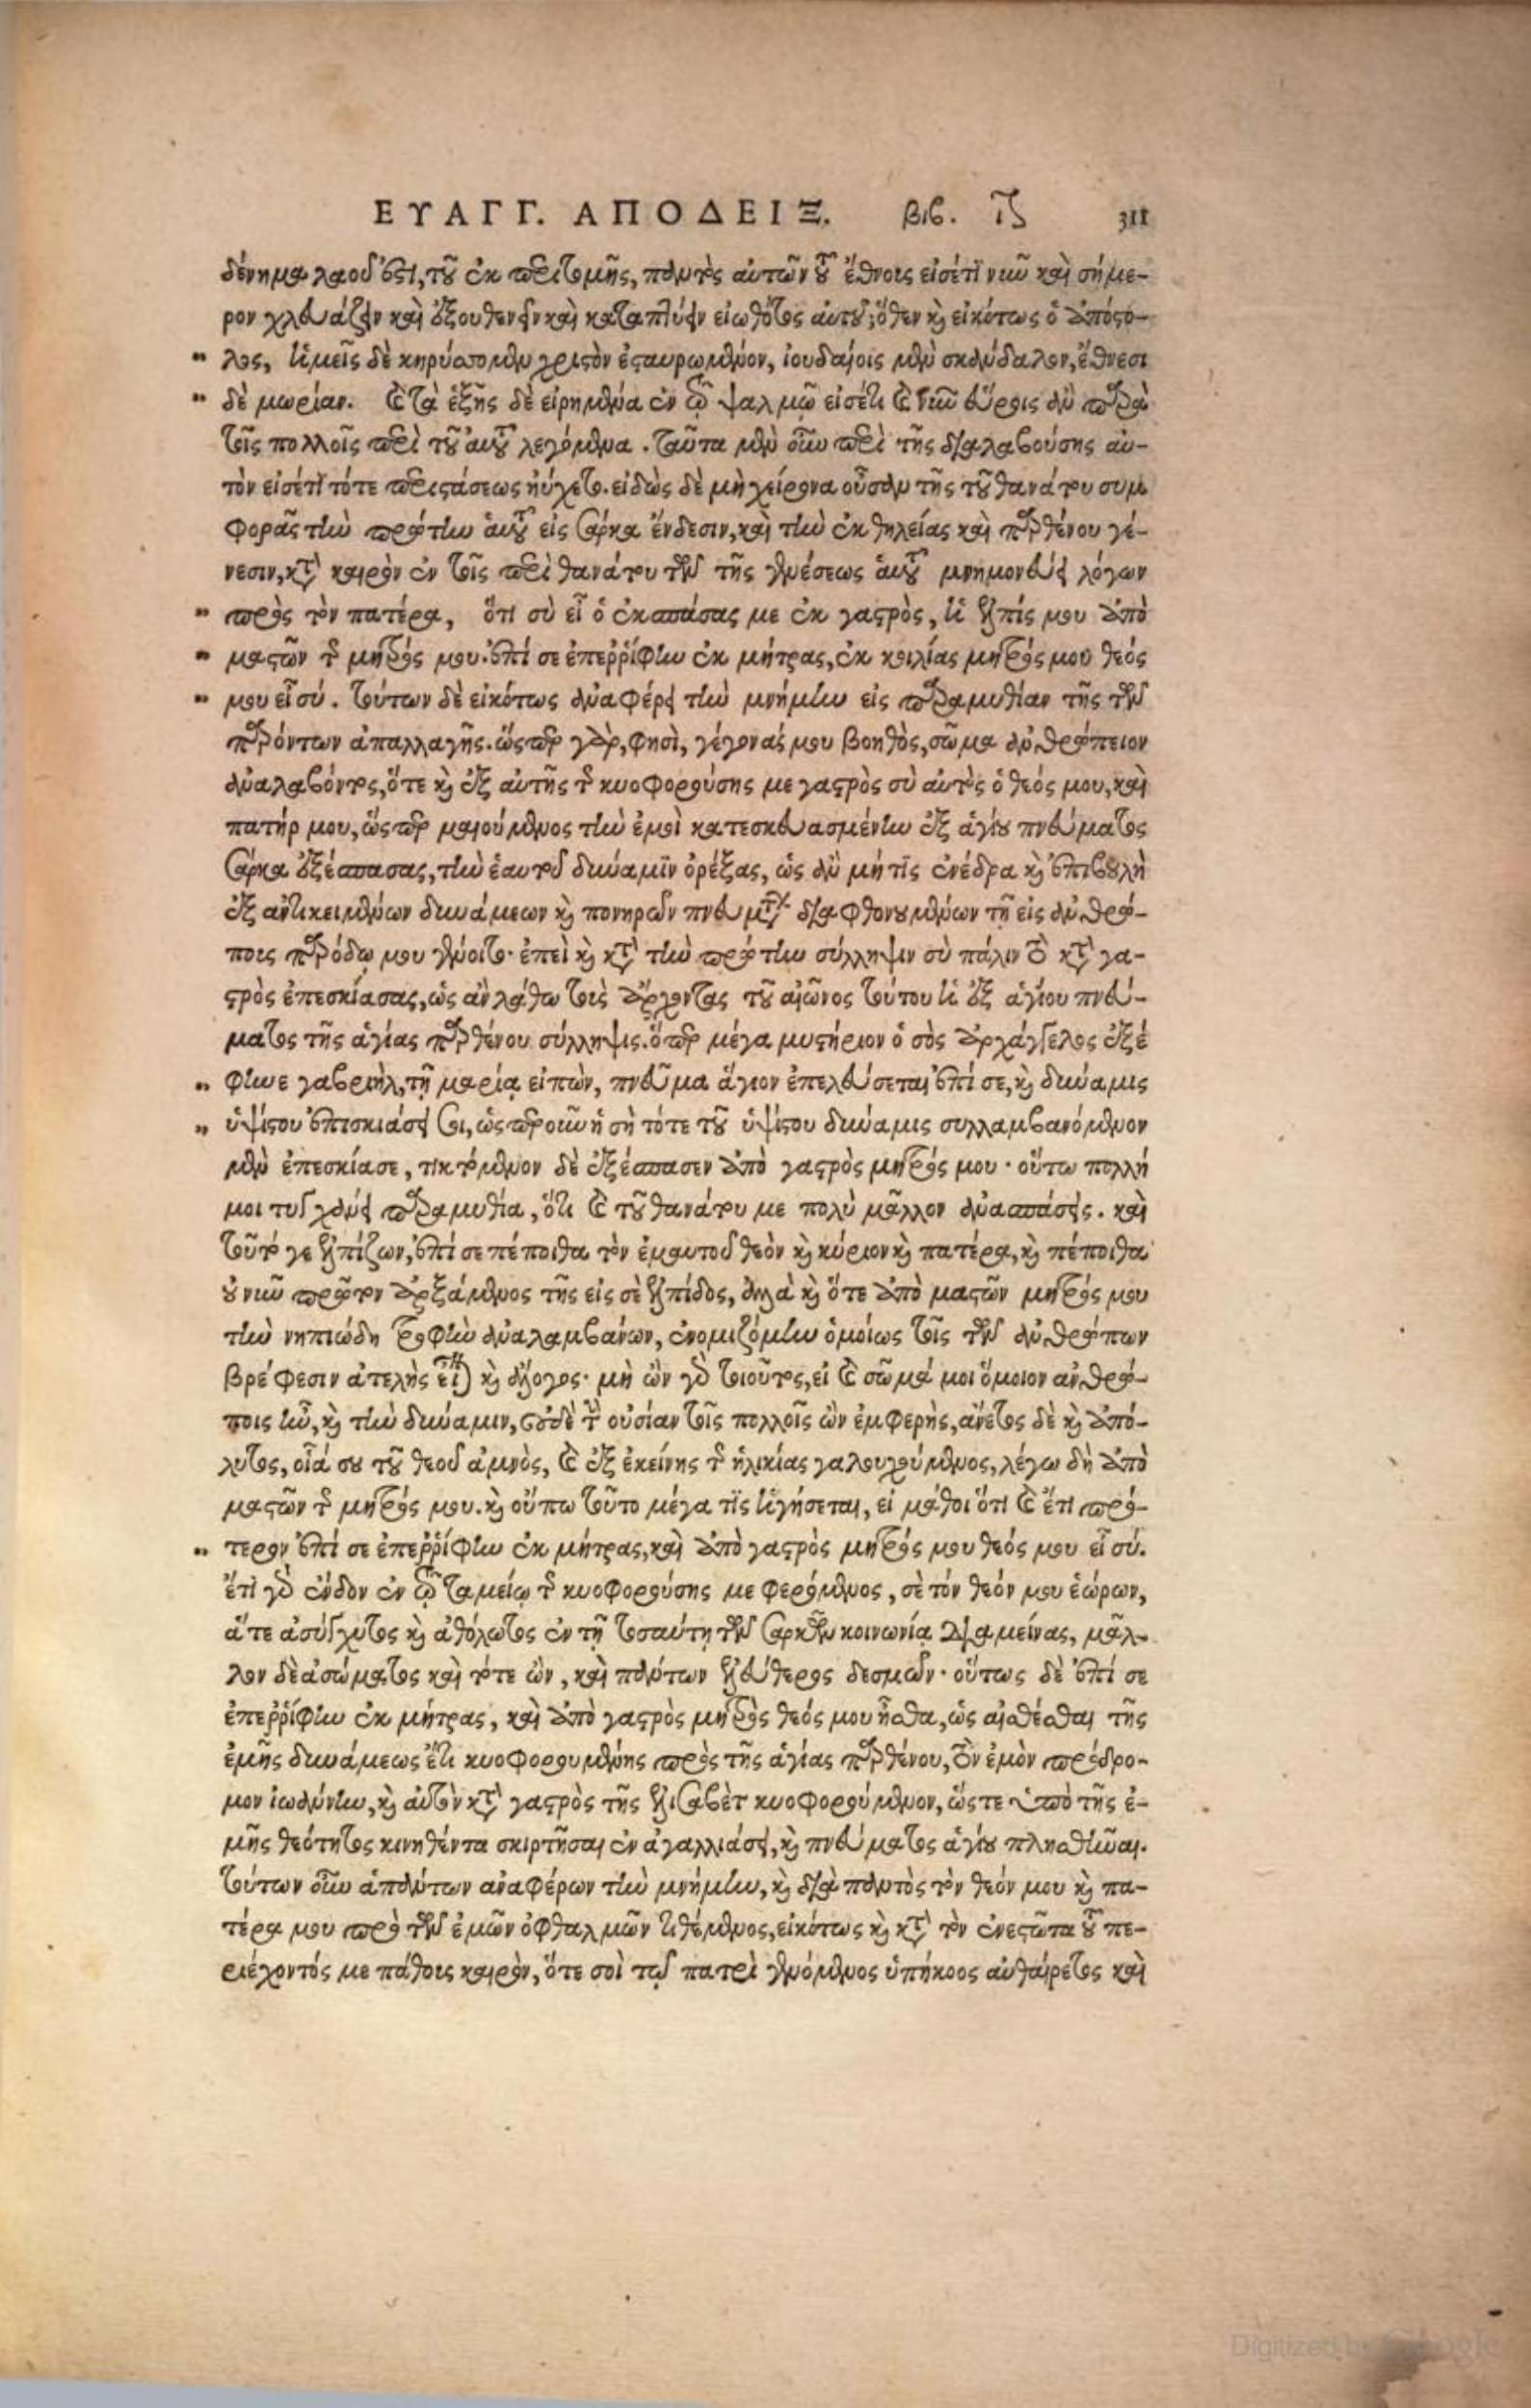 ΕΥΑΓΓ. ΑΠΟΔΕΙΞ. βιβ. ιζ 311
δένημα λαοῦ ἐστι, τοῦ ἐκ περιτομῆς, παντὸς αὐτῶν τοῦ ἔθνους εἰσέτι νῦν καὶ σήμε-
ρον χλευάζειν καὶ ἐξουθενεῖν καὶ καταπτύειν εἰωθότος αὐτόν; ὅθεν καὶ εἰκότως ὁ ἀπόστο-
" λος, ἡμεῖς δὲ κηρύσσομεν χριστὸν ἐσταυρωμένον, ἰουδαίοις μὲν σκάνδαλον, ἔθνεσι
" δὲ μωρίαν. καὶ τὰ ἑξῆς δὲ εἰρημένα ἐν τῷ ψαλμῷ εἰσέτι καὶ νῦν εὕροις ἂν παρὰ
τοῖς πολλοῖς περὶ τοῦ αὐτοῦ λεγόμενα. ταῦτα μὲν οὖν περὶ τῆς διαλαβούσης αὐ-
τὸν εἰσέτι τότε περιστάσεως ηὔχετο. εἰδὼς δὲ μὴ χείρονα οὖσαν τῆς τοῦ θανάτου συμ
φορᾶς τὴν πρώτην αὐτοῦ εἰς σάρκα ἔνδεσιν, καὶ τὴν ἐκ θηλείας καὶ παρθένου γέ-
νεσιν, κατὰ καιρὸν ἐν τοῖς περὶ θανάτου τῶν τῆς γενέσεως αὐτοῦ μνημονεύει λόγων
" πρὸς τὸν πατέρα, ὅτι σὺ εἶ ὁ ἐκσπάσας με ἐκ γαστρὸς, ἡ ἐλπίς μου ἀπὸ
" μαστῶν τῆς μητρός μου. ἐπί σε ἐπερρίφην ἐκ μήτρας, ἐκ κοιλίας μητρός μου θεός
" μου εἶ σύ. τούτων δὲ εἰκότως ἀναφέρει τὴν μνήμην εἰς παραμυθίαν τῆς τῶν
παρόντων ἀπαλλαγῆς. ὥσπερ γὰρ, φησὶ, γέγονάς μου βοηθὸς, σῶμα ἀνθρώπειον
ἀναλαβόντος, ὅτε καὶ ἐξ αὐτῆς τῆς κυοφορούσης με γαστρὸς σὺ αὐτὸς ὁ θεός μου, καὶ
πατήρ μου, ὥσπερ μαιούμενος τὴν ἐμοὶ κατεσκευασμένην ἐξ ἁγίου πνεύματος
σάρκα ἐξέσπασας, τὴν ἑαυτοῦ δύναμιν ὀρέξας, ὡς ἂν μή τις ἐνέδρα καὶ ἐπιβουλὴ
ἐξ ἀντικειμένων δυνάμεων καὶ πονηρῶν πνευμάτων διαφθονουμένων τῇ εἰς ἀνθρώ-
πους παρόδῳ μου γένοιτο. ἐπεὶ καὶ κατὰ τὴν πρώτην σύλληψιν σὺ πάλιν τὸ κατὰ γα-
στρὸς ἐπεσκίασας, ὡς ἂν λάθῃ τοὺς ἄρχοντας τοῦ αἰῶνος τούτου ἡ ἐξ ἁγίου πνεύ-
ματος τῆς ἁγίας παρθένου σύλληψις. ὅπερ μέγα μυστήριον ὁ σὸς ἀρχάγγελος ἐξέ
" φηνε γαβριὴλ, τῇ μαρίᾳ εἰπὼν, πνεῦμα ἅγιον ἐπελεύσεται ἐπί σε, καὶ δύναμις
" ὑψίστου ἐπισκιάσει σοι, ὥσπερ οὖν ἡ σὴ τότε τοῦ ὑψίστου δύναμις συλλαμβανόμενον
μὲν ἐπεσκίασε, τικτόμενον δὲ ἐξέσπασεν ἀπὸ γαστρὸς μητρός μου. οὕτω πολλή
μοι τυγχάνει παραμυθία, ὅτι καὶ τοῦ θανάτου με πολὺ μᾶλλον ἀνασπάσεις. καὶ
τοῦτό γε ἐλπίζων, ἐπί σε πέποιθα τὸν ἐμαυτοῦ θεὸν καὶ κύριον καὶ πατέρα, καὶ πέποιθα
οὐ νῦν πρῶτον ἀρξάμενος τῆς εἰς σὲ ἐλπίδος, ἀλλὰ καὶ ὅτε ἀπὸ μαστῶν μητρός μου
τὴν νηπιώδη τροφὴν ἀναλαμβάνων, ἐνομιζόμην ὁμοίως τοῖς τῶν ἀνθρώπων
βρέφεσιν ἀτελὴς εἶναι καὶ ἄλογος. μὴ ὢν γὰρ τοιοῦτος, εἰ καὶ σῶμά μοι ὅμοιον ἀνθρώ-
ποις ἦν, καὶ τὴν δύναμιν, οὐδὲ τὴν οὐσίαν τοῖς πολλοῖς ὢν ἐμφερὴς, ἄνετος δὲ καὶ ἀπό-
λυτος, οἷά σου τοῦ θεοῦ ἀμνὸς, καὶ ἐξ ἐκείνης τῆς ἡλικίας γαλουχούμενος, λέγω δὴ ἀπὸ
μαστῶν τῆς μητρός μου. καὶ οὔπω τοῦτο μέγα τις ἡγήσεται, εἰ μάθοι ὅτι καὶ ἔτι πρό-
" τερον ἐπί σε ἐπερρίφην ἐκ μήτρας, καὶ ἀπὸ γαστρὸς μητρός μου θεός μου εἶ σύ.
ἔτι γὰρ ἔνδον ἐν τῷ ταμείῳ τῆς κυοφορούσης με φερόμενος, σὲ τόν θεόν μου ἑώρων,
ἅτε ἀσύγχυτος καὶ ἀθόλωτος ἐν τῇ τοσαύτῃ τῶν σαρκῶν κοινωνίᾳ διαμείνας, μᾶλ-
λον δὲ ἀσώματος καὶ τότε ὢν, καὶ πάντων ἐλεύθερος δεσμῶν. οὕτως δὲ ἐπί σε
ἐπερρίφην ἐκ μήτρας, καὶ ἀπὸ γαστρὸς μητρὸς θεός μου ἦσθα, ὡς αἰσθέσθαι τῆς
ἐμῆς δυνάμεως ἔτι κυοφορουμένης πρὸς τῆς ἁγίας παρθένου, τὸν ἐμὸν πρόδρο-
μον ἰωάννην, καὶ αὐτὸν κατὰ γαστρὸς τῆς ἐλισάβετ κυοφορούμενον, ὥστε ὑπὸ τῆς ἐ-
μῆς θεότητος κινηθέντα σκιρτῆσαι ἐν ἀγαλλιάσει, καὶ πνεύματος ἁγίου πλησθῆναι.
τούτων οὖν ἁπάντων ἀναφέρων τὴν μνήμην, καὶ διὰ παντὸς τὸν θεόν μου καὶ πα-
τέρα μου πρὸ τῶν ἐμῶν ὀφθαλμῶν τιθέμενος, εἰκότως καὶ κατὰ τὸν ἐνεστῶτα τοῦ πε-
ριέχοντός με πάθους καιρὸν, ὅτε σοὶ τῷ πατρὶ γενόμενος ὑπήκοος αὐθαίρετος καὶ
Digitized by Google